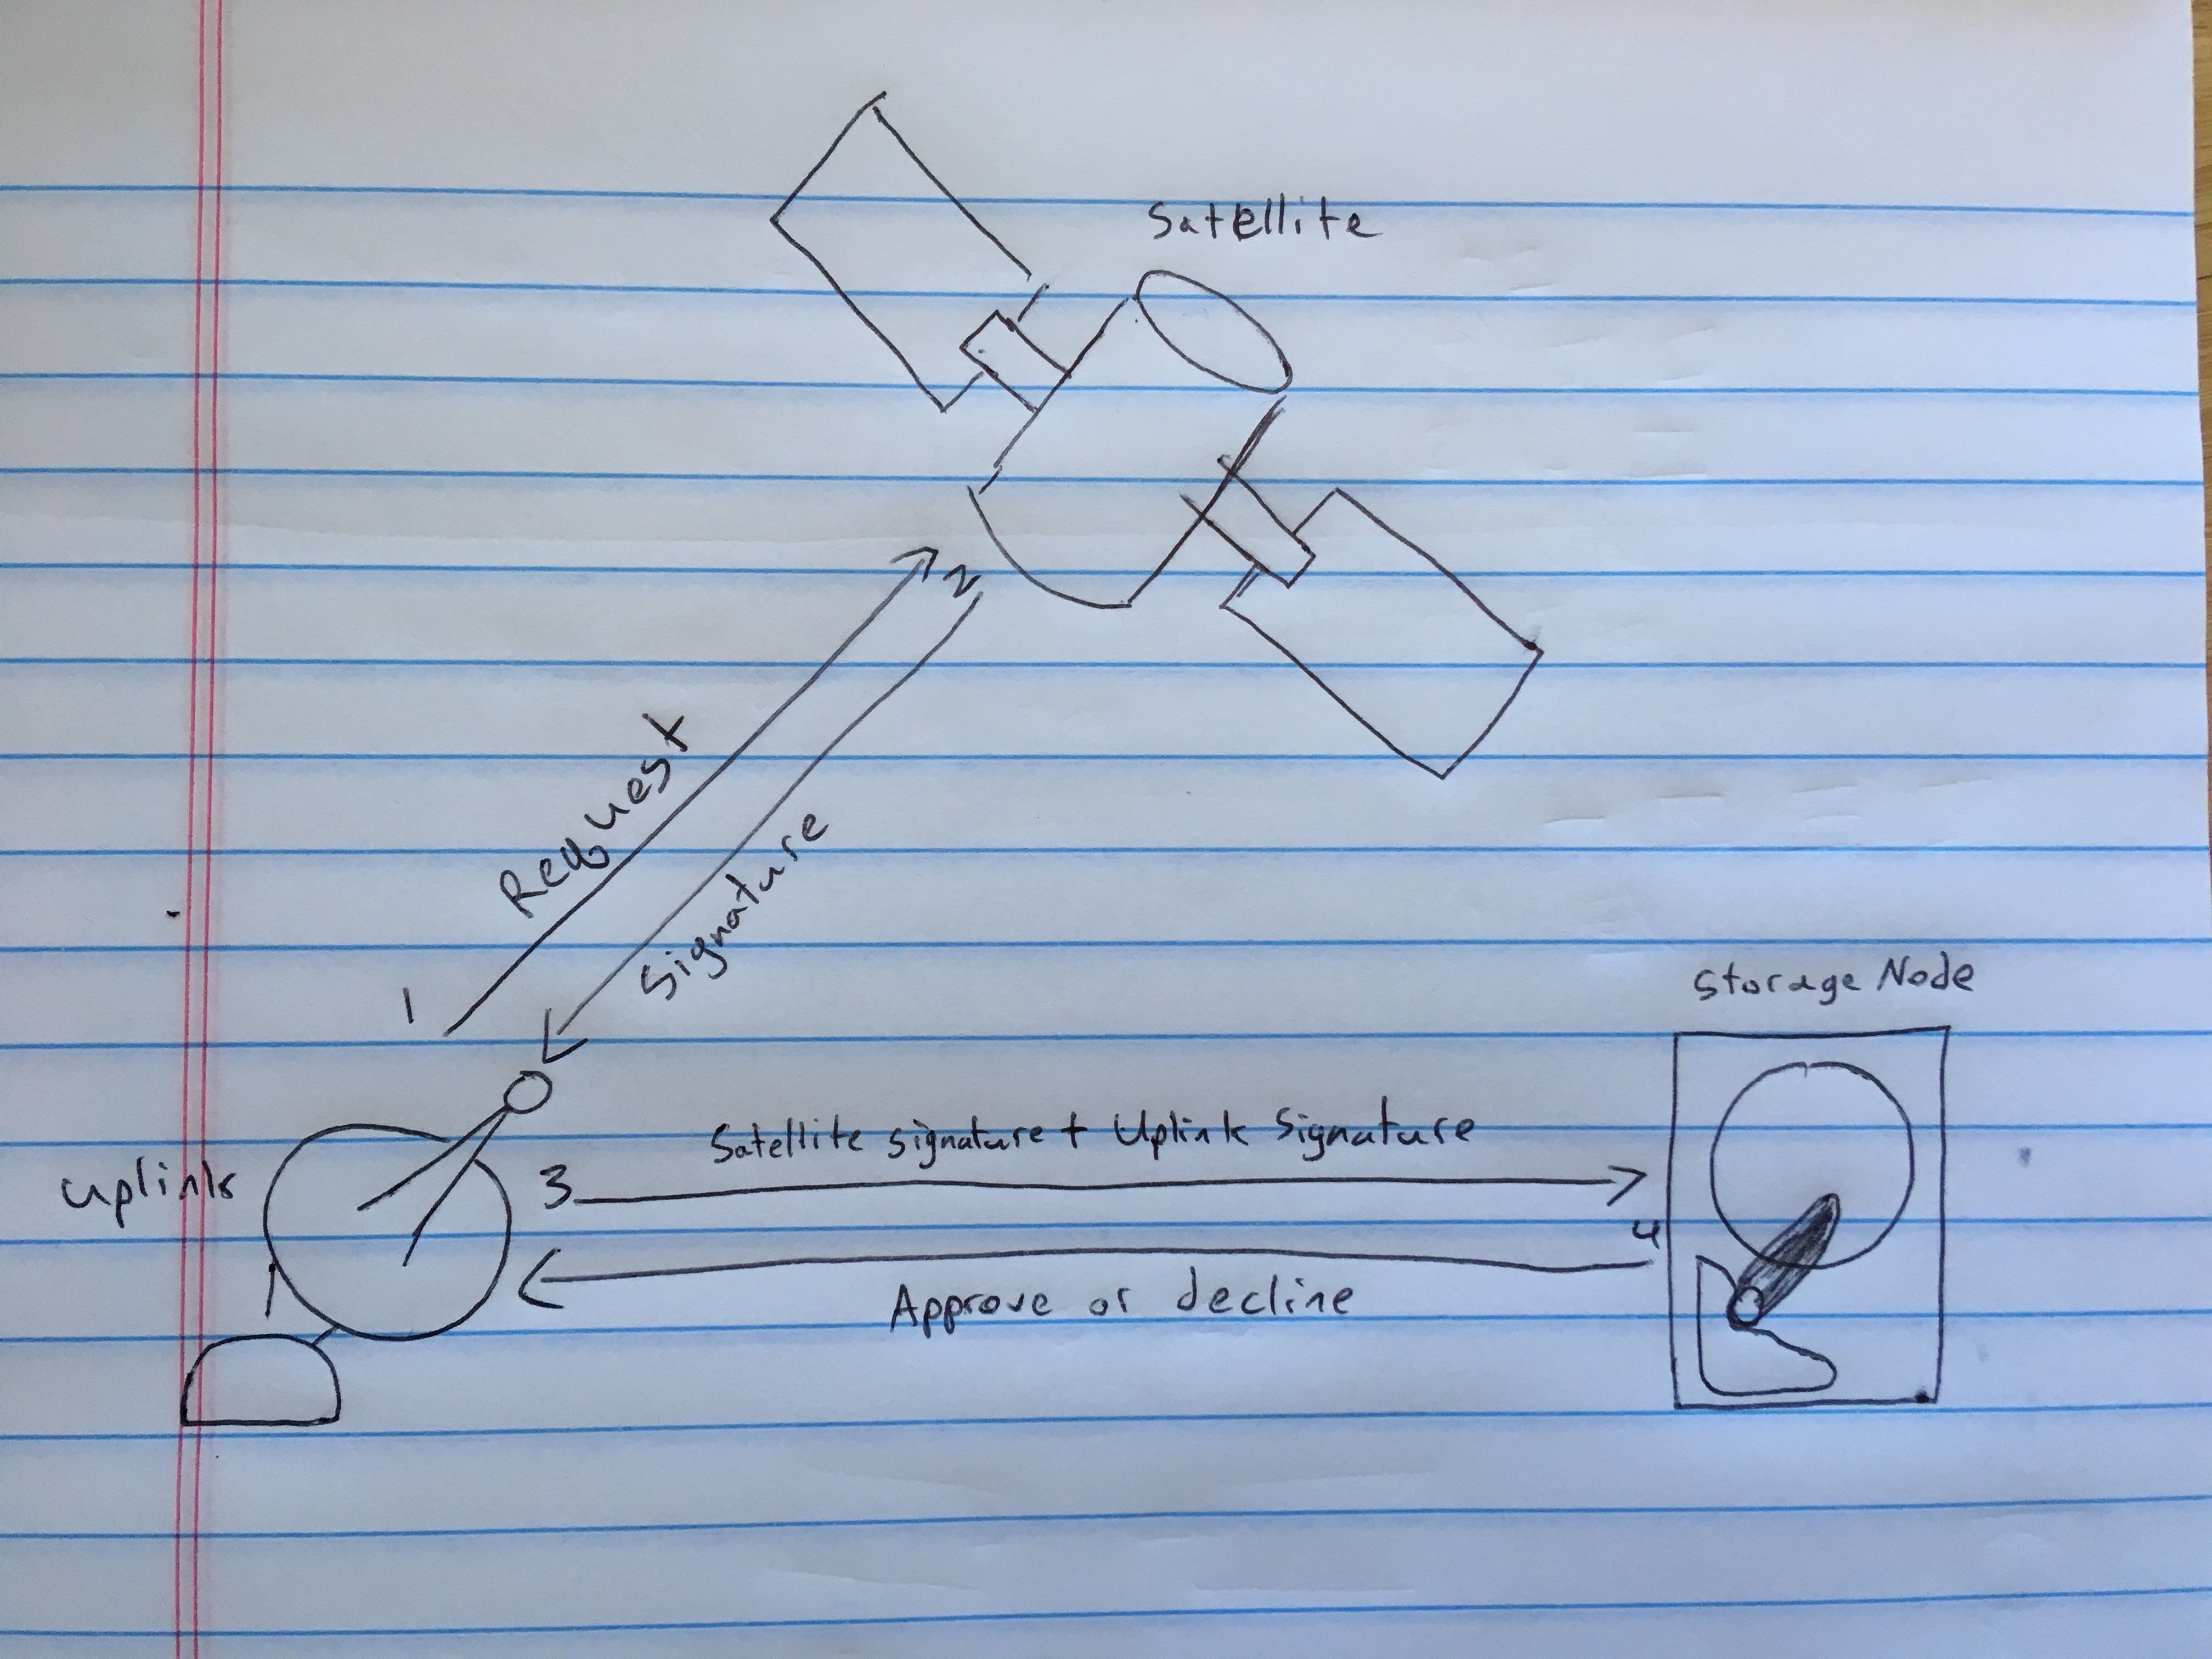 Satellite
2
Request
Signature
1
Storage Node
Satellite signature + Uplink Signature
uplink
3
4
Approve or decline